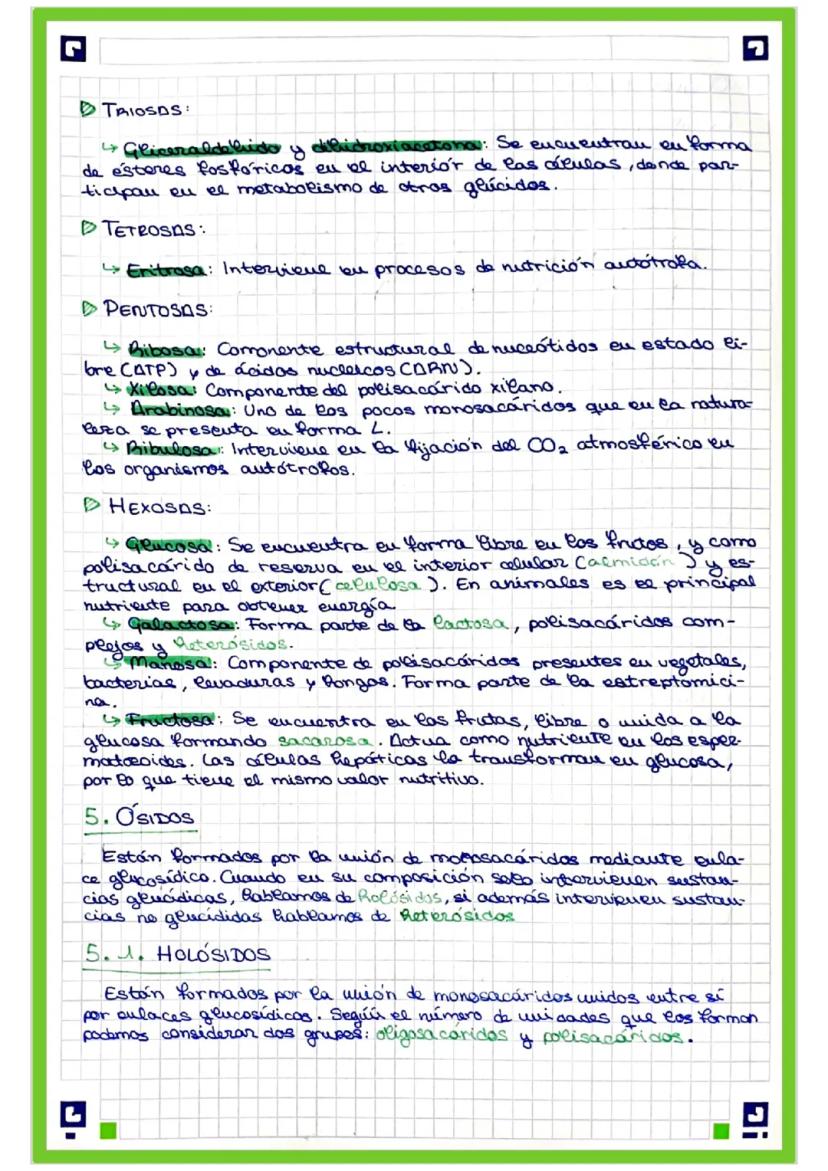 TRIOSAS:
↳ Gliceraldehido y dihidroxiacetona: Se encuentran en forma
de ésteres fosfóricos en el interior de las células, donde par-
ticipan en el metabolismo de otros glúcidos.
TETROSAS:
↳ Eritrosa: Interviene en procesos de nutrición autótrofa.
PENTOSAS:
↳ Ribosa: Componente estructural de nucleótidos en estado li-
bre (ATP) y de ácidos nucleicos (ARN).
↳ Xilosa: Componente del polisacárido xilano.
↳ Arabinosa: Uno de los pocos monosacáridos que en la natura-
leza se presenta en forma L.
↳ Ribulosa: Interviene en la fijación del CO₂ atmosférico en
los organismos autótrofos.
HEXOSAS:
↳ Glucosa: Se encuentra en forma libre en los frutos, y como
polisacárido de reserva en el interior celular (almidón) y es-
tructural en el exterior (celulosa). En animales es el principal
nutriente para obtener energía
↳ Galactosa: Forma parte de la lactosa, polisacáridos com-
plejos y heterósidos.
↳ Manosa: Componente de polisacáridos presentes en vegetales,
bacterias, levaduras y hongos. Forma parte de la estreptomici-
na.
↳ Fructosa: Se encuentra en las frutas, libre o unida a la
glucosa formando sacarosa. Actua como nutriente en los esper-
matozoides. Las células hepáticas la transforman en glucosa,
por lo que tiene el mismo valor nutritivo.
5. ÓSIDOS
Están formados por la unión de monosacáridos mediante enla-
ce glucosídico. Cuando en su composición solo intervienen sustan-
cias glucídicas, hablamos de holósidos, si además intervienen sustan-
cias no glucídidas hablamos de heterósidos
5.1. HOLÓSIDOS
Están formados por la unión de monosacáridos unidos entre sí
por enlaces glucosídicos. Según el número de unidades que los forman
podemos considerar dos grupos: oligosacáridos y polisacáridos.